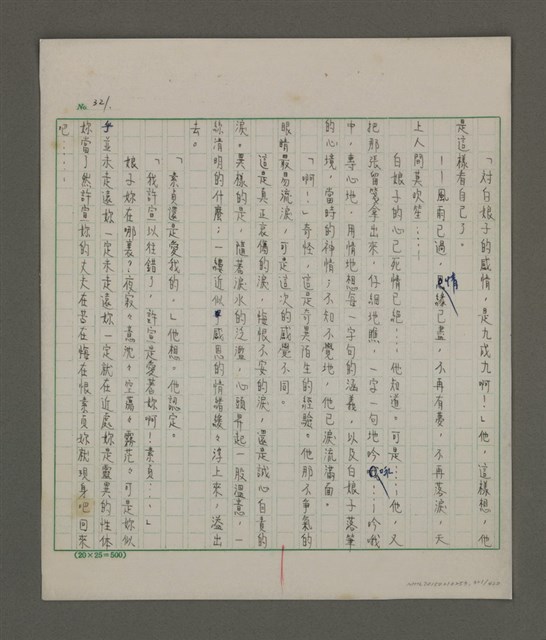 No. 321.
「對白娘子的感情，是九成九啊！」他，這樣想，他
是這樣看自己了。
——風雨已過，情緣已盡，不再有憂，不再落淚，天
上人間莫吹笙……！
白娘子的心已死情已絕……他知道。可是……他，又
把那張留箋拿出來，仔細地瞧，一字一句地吟哦……吟哦
中，專心地，用情地想每一字句的涵義，以及白娘子落筆
的心境，當時的神情；不知不覺地，他已淚流滿面。
「啊！」奇怪，這是奇異陌生的經驗。他那不爭氣的
眼睛最易流淚，可是這次的感覺不同。
這是真正哀傷的淚，悔恨不安的淚，還是誠心自責的
淚。異樣的是，隨著淚水的泛濫，心頭昇起一股溫意，一
絲清明的什麼；一縷近似感恩的情緒緩々浮上來，溢出
去。
「素貞還是愛我的，」他想。他認定。
「我許宣以往錯了，許宣是愛著妳啊！素貞……」
娘子妳在哪裏？夜寂々意沈々空蕩々霧茫々可是妳似
乎並未走遠妳一定未走遠妳一定就在近處妳是靈異的性体
妳當了然許宣妳的丈夫在苦在悔在恨素貞妳就現身吧回來
吧……
(20×25=500)